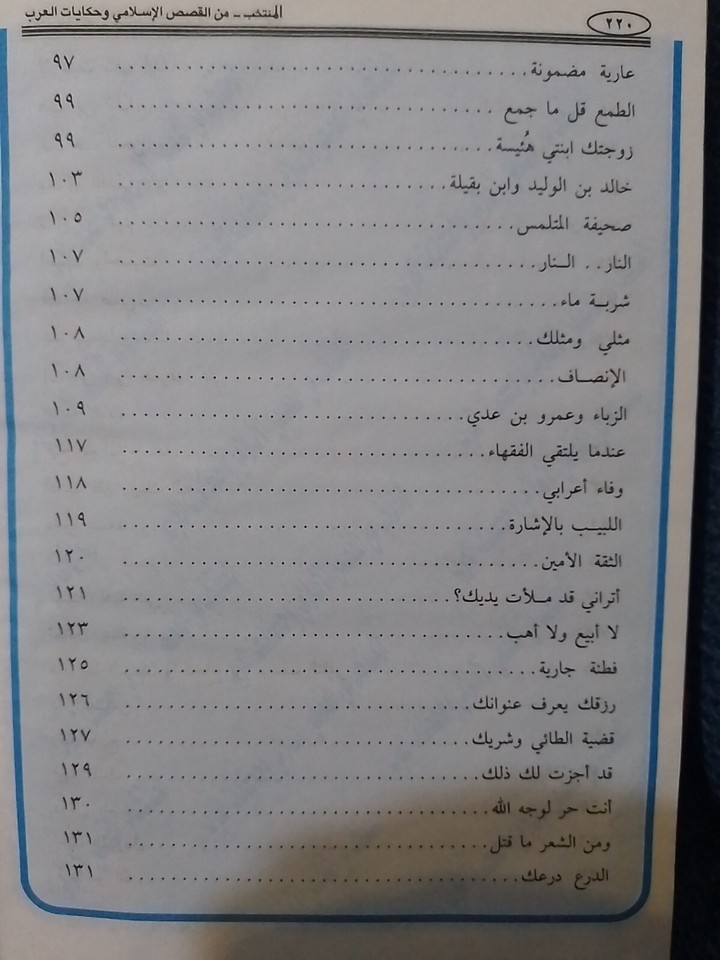 ٢٢٠
المنتخب ــ من القصص الإسلامي وحكايات العرب
عارية مضمونة ........ ٩٧
الطمع قل ما جمع ........ ٩٩
زوجتك ابنتي هُنَيسة ........ ٩٩
خالد بن الوليد وابن بقيلة ........ ١٠٣
صحيفة المتلمس ........ ١٠٥
النار.. النار ........ ١٠٧
شربة ماء ........ ١٠٧
مثلي ومثلك ........ ١٠٨
الإنصاف ........ ١٠٨
الزباء وعمرو بن عدي ........ ١٠٩
عندما يلتقي الفقهاء ........ ١١٧
وفاء أعرابي ........ ١١٨
اللبيب بالإشارة ........ ١١٩
الثقة الأمين ........ ١٢٠
أتراني قد ملأت يديك؟ ........ ١٢١
لا أبيع ولا أهب ........ ١٢٣
فطنة جارية ........ ١٢٥
رزقك يعرف عنوانك ........ ١٢٦
قضية الطائي وشريك ........ ١٢٧
قد أجزت لك ذلك ........ ١٢٩
أنت حر لوجه الله ........ ١٣٠
ومن الشعر ما قتل ........ ١٣١
الدرع درعك ........ ١٣١